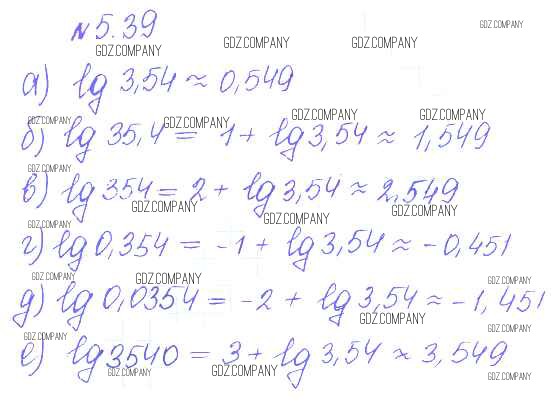 GDZ.COMPANY
№5.39
GDZ.COMPANY GDZ.COMPANY GDZ.COMPANY
а) lg 3,54 ≈ 0,549
GDZ.COMPANY GDZ.COMPANY GDZ.COMPANY GDZ.COMPANY
б) lg 35,4 = 1 + lg 3,54 ≈ 1,549
GDZ.COMPANY
в) lg 354 = 2 + lg 3,54 ≈ 2,549
GDZ.COMPANY GDZ.COMPANY
GDZ.COMPANY GDZ.COMPANY
г) lg 0,354 = -1 + lg 3,54 ≈ -0,451
GDZ.COMPANY GDZ.COMPANY GDZ.COMPANY
д) lg 0,0354 = -2 + lg 3,54 ≈ -1,451
GDZ.COMPANY GDZ.COMPANY
GDZ.COMPANY
е) lg 3540 = 3 + lg 3,54 ≈ 3,549
GDZ.COMPANY GDZ.COMPANY GDZ.COMPANY